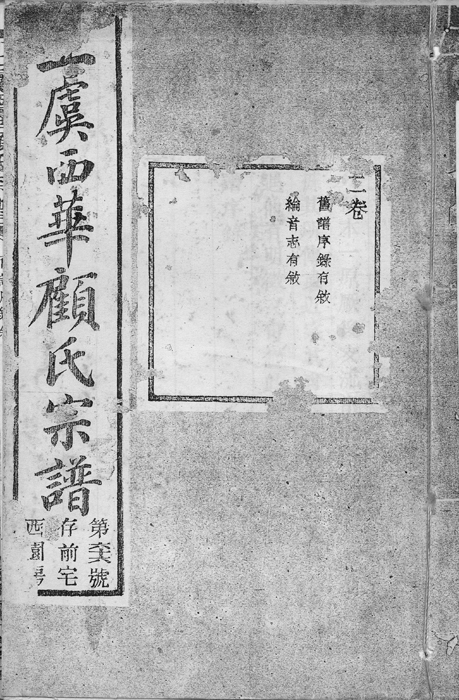 二卷
舊譜序錄有敘
綸音志有敘
虞西華顧氏宗譜
第號
存前宅
西園房